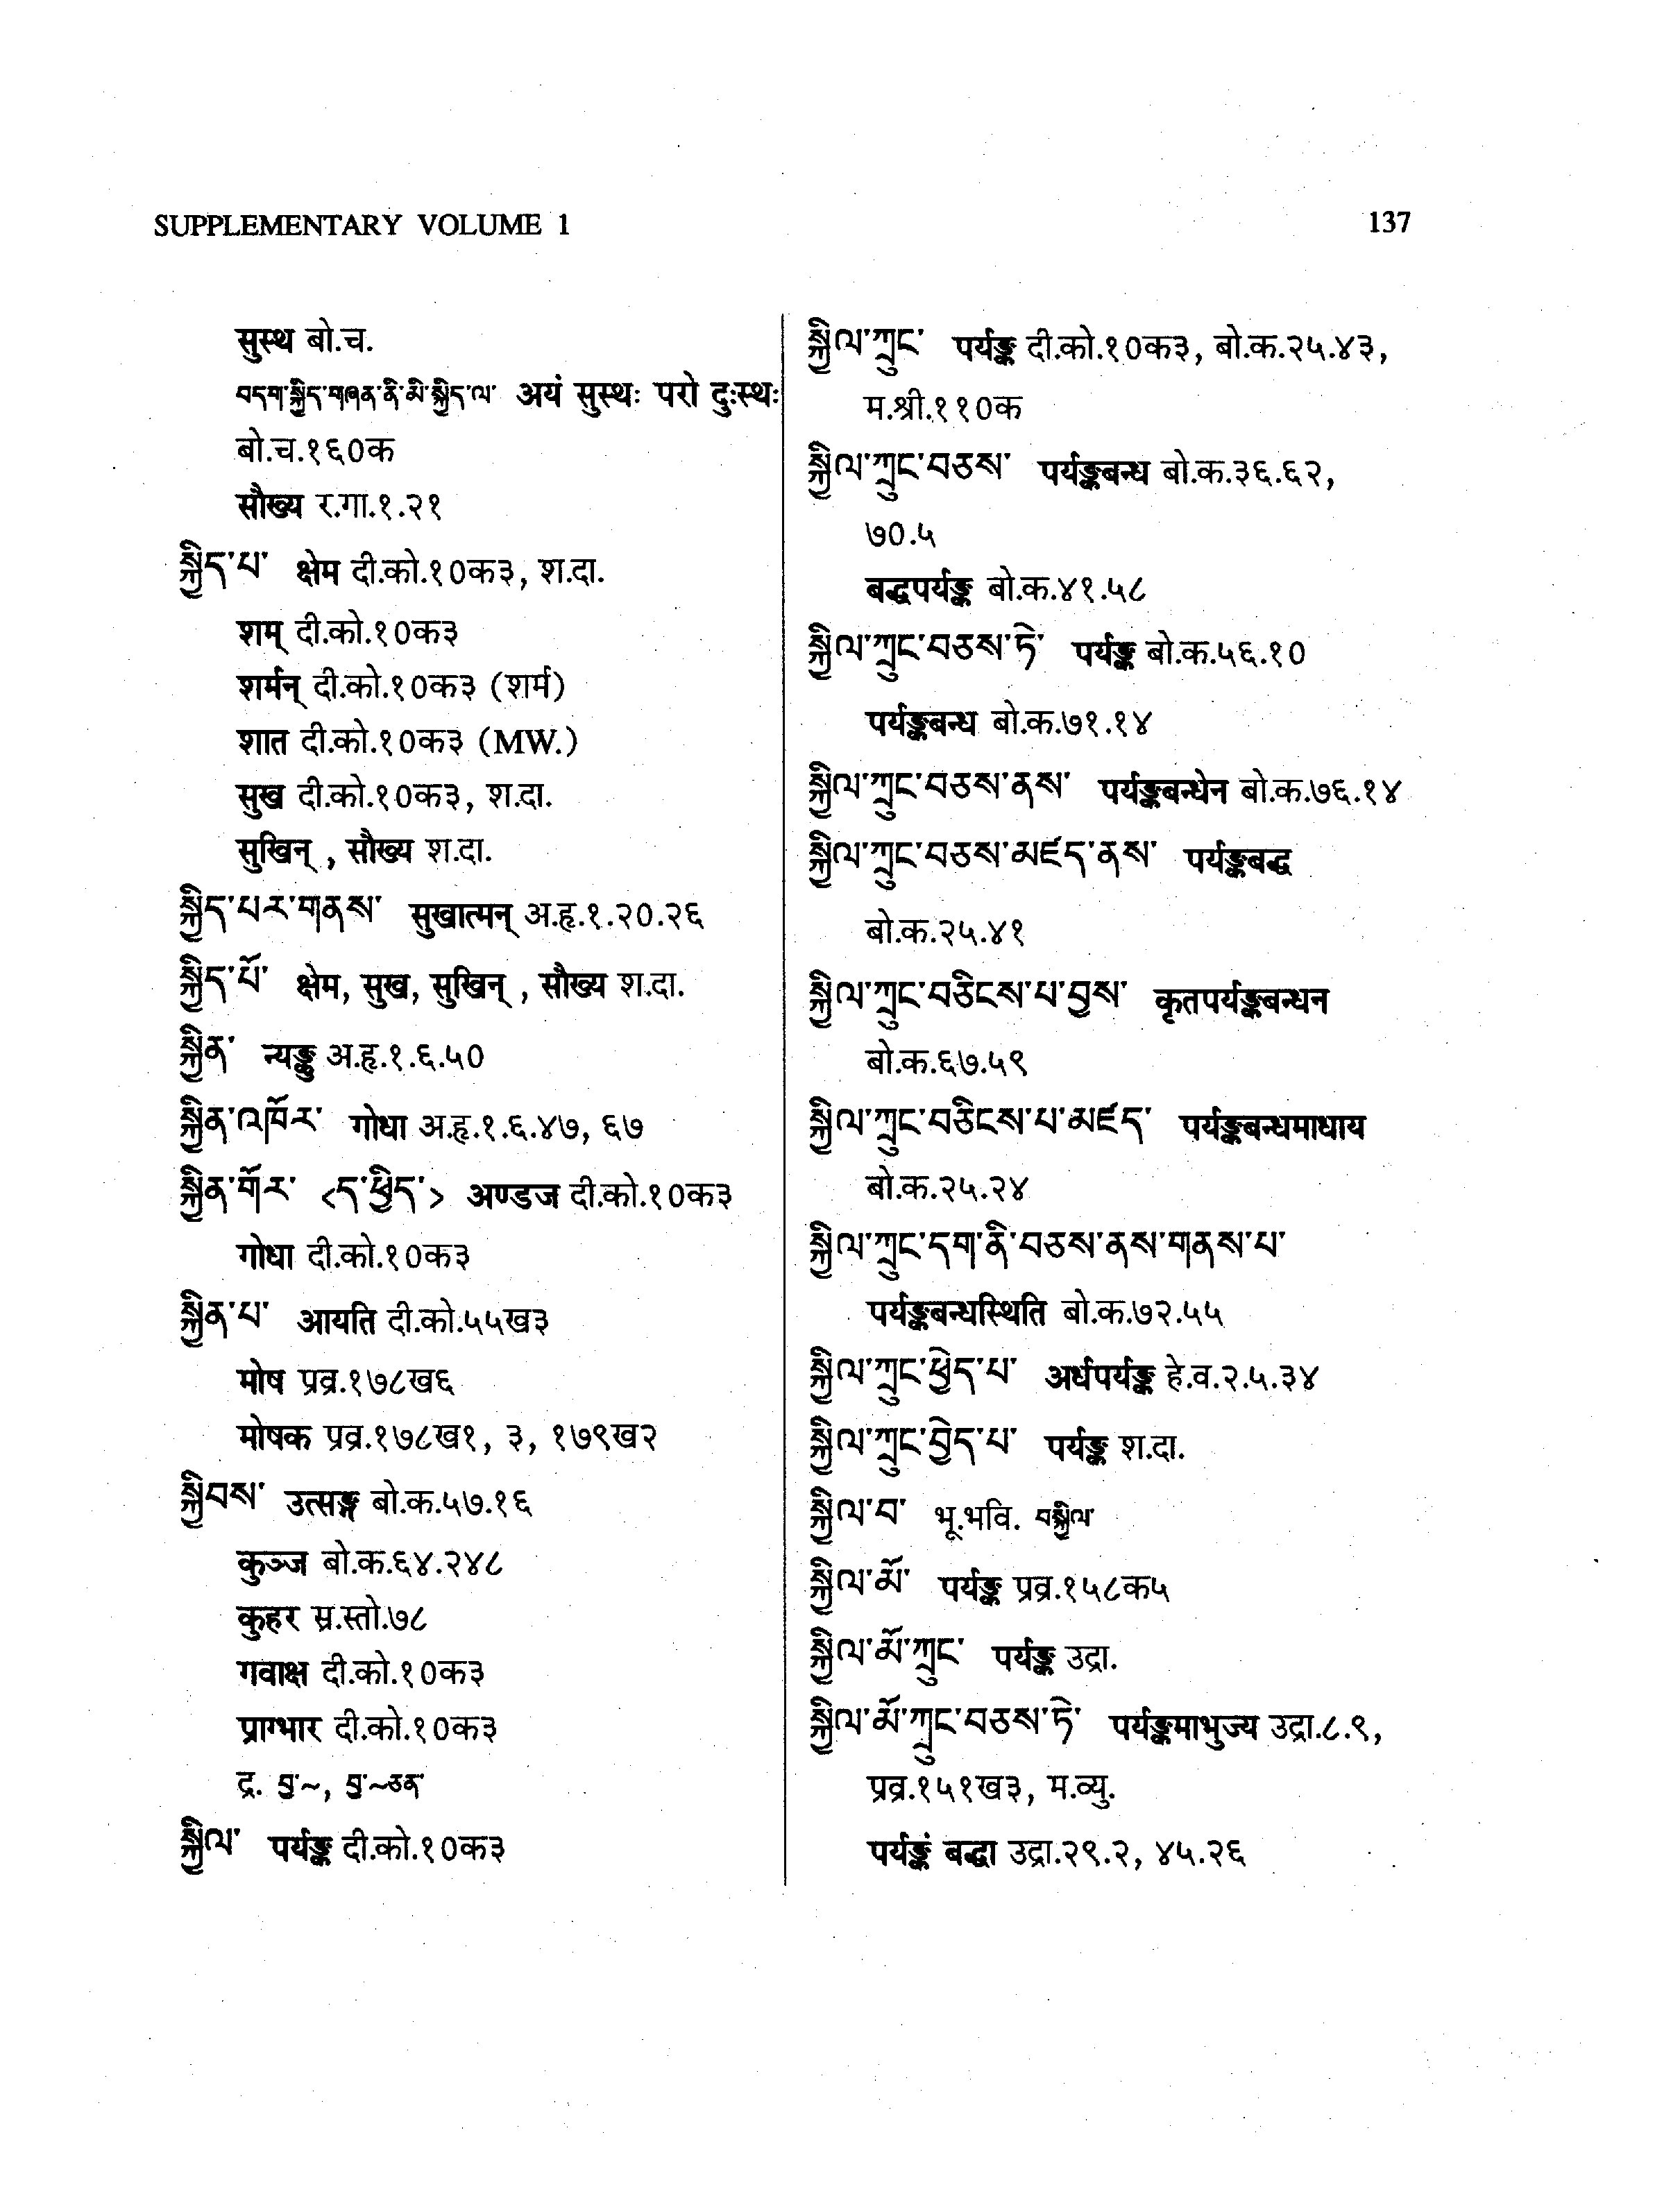 SUPPLEMENTARY VOLUME 1
137
सुस्थ बो.च.
བདག་སྐྱིད་གཞན་ནི་མི་སྐྱིད་ལ་ अयं सुस्थः परो दुःस्थः
बो.च.१६०क
सौख्य र.गा.१.२१
སྐྱིད་པ་ क्षेम दी.को.१०क३, श.दा.
शम् दी.को.१०क३
शर्मन् दी.को.१०क३ (शर्म)
शात दी.को.१०क३ (MW.)
सुख दी.को.१०क३, श.दा.
सुखिन् , सौख्य श.दा.
སྐྱིད་པར་གནས་ सुखात्मन् अ.हृ.१.२०.२६
སྐྱིད་པོ་ क्षेम, सुख, सुखिन् , सौख्य श.दा.
སྐྱིན་ न्यङ्कु अ.हृ.१.६.५०
སྐྱིན་འཁོར་ गोधा अ.हृ.१.६.४७, ६७
སྐྱིན་གོར་ <ད་ཕྱིད་> अण्डज दी.को.१०क३
गोधा दी.को.१०क३
སྐྱིན་པ་ आयति दी.को.५५ख३
मोष प्रव्र.१७८ख६
मोषक प्रव्र.१७८ख१, ३, १७९ख२
སྐྱིབས་ उत्सङ्ग बो.क.५७.१६
कुञ्ज बो.क.६४.२४८
कुहर स्र.स्तो.७८
गवाक्ष दी.को.१०क३
प्राग्भार दी.को.१०क३
द्र. བྲ་~, བྲ་~ཅན་
སྐྱིལ་ पर्यङ्क दी.को.१०क३
སྐྱིལ་ཀྲུང་ पर्यङ्क दी.को.१०क३, बो.क.२५.४३,
म.श्री.११०क
སྐྱིལ་ཀྲུང་བཅས་ पर्यङ्कबन्ध बो.क.३६.६२,
७०.५
बद्धपर्यङ्क बो.क.४१.५८
སྐྱིལ་ཀྲུང་བཅས་ཏེ་ पर्यङ्क बो.क.५६.१०
पर्यङ्कबन्ध बो.क.७१.१४
སྐྱིལ་ཀྲུང་བཅས་ནས་ पर्यङ्कबन्धेन बो.क.७६.१४
སྐྱིལ་ཀྲུང་བཅས་མཛད་ནས་ पर्यङ्कबद्ध
बो.क.२५.४१
སྐྱིལ་ཀྲུང་བཅིངས་པ་བྱས་ कृतपर्यङ्कबन्धन
बो.क.६७.५९
སྐྱིལ་ཀྲུང་བཅིངས་པ་མཛད་ पर्यङ्कबन्धमाधाय
बो.क.२५.२४
སྐྱིལ་ཀྲུང་དག་ནི་བཅས་ནས་གནས་པ་
पर्यङ्कबन्धस्थिति बो.क.७२.५५
སྐྱིལ་ཀྲུང་ཕྱེད་པ་ अर्धपर्यङ्क हे.व.२.५.३४
སྐྱིལ་ཀྲུང་བྱེད་པ་ पर्यङ्क श.दा.
སྐྱིལ་བ་ भू.भवि. བསྐྱིལ་
སྐྱིལ་མོ་ पर्यङ्क प्रव्र.१५८क५
སྐྱིལ་མོ་ཀྲུང་ पर्यङ्क उद्रा.
སྐྱིལ་མོ་ཀྲུང་བཅས་ཏེ་ पर्यङ्कमाभुज्य उद्रा.८.९,
प्रव्र.१५१ख३, म.व्यु.
पर्यङ्कं बद्धा उद्रा.२९.२, ४५.२६